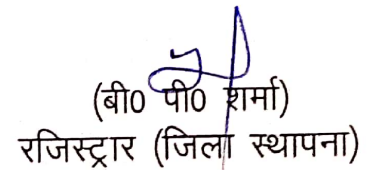 (बी0 पी0 शर्मा)
रजिस्ट्रार (जिला स्थापना)